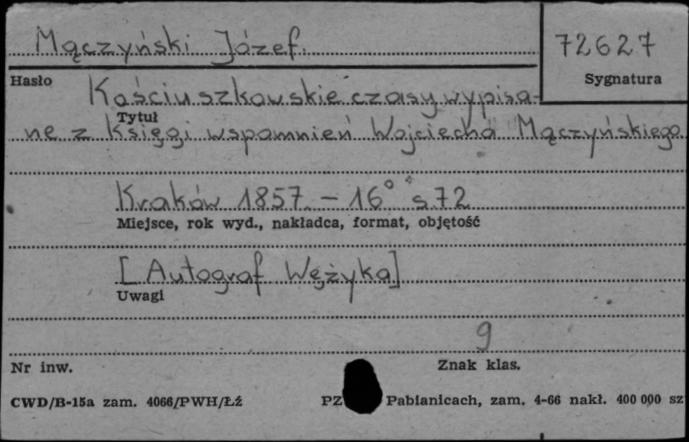 Mączyński Józef.
72627
Hasło
Sygnatura
Kościuszkowskie czasy wypisa-
Tytuł
ne z Księgi wspomnień Wojciecha Mączyńskiego
Kraków 1857. – 16° s 72
Miejsce, rok wyd., nakładca, format, objętość
[Autograf Wężyka]
Uwagi
9
Nr inw.
Znak klas.
CWD/B-15a zam. 4066/PWH/Łź
PZ Pabianicach, zam. 4-66 nakł. 400 000 sz